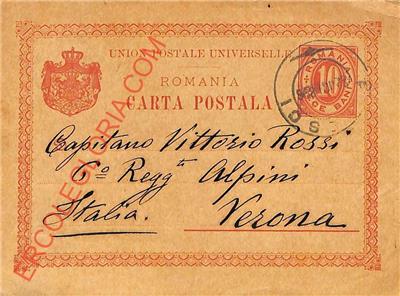 UNION POSTALE UNIVERSELLE
ROMANIA
CARTA POSTALA
ROMANIA
10
Capitano Vittorio Rossi
6º Reggtº Alpini
Italia. Verona.
ERCOLEGLORIA.COM